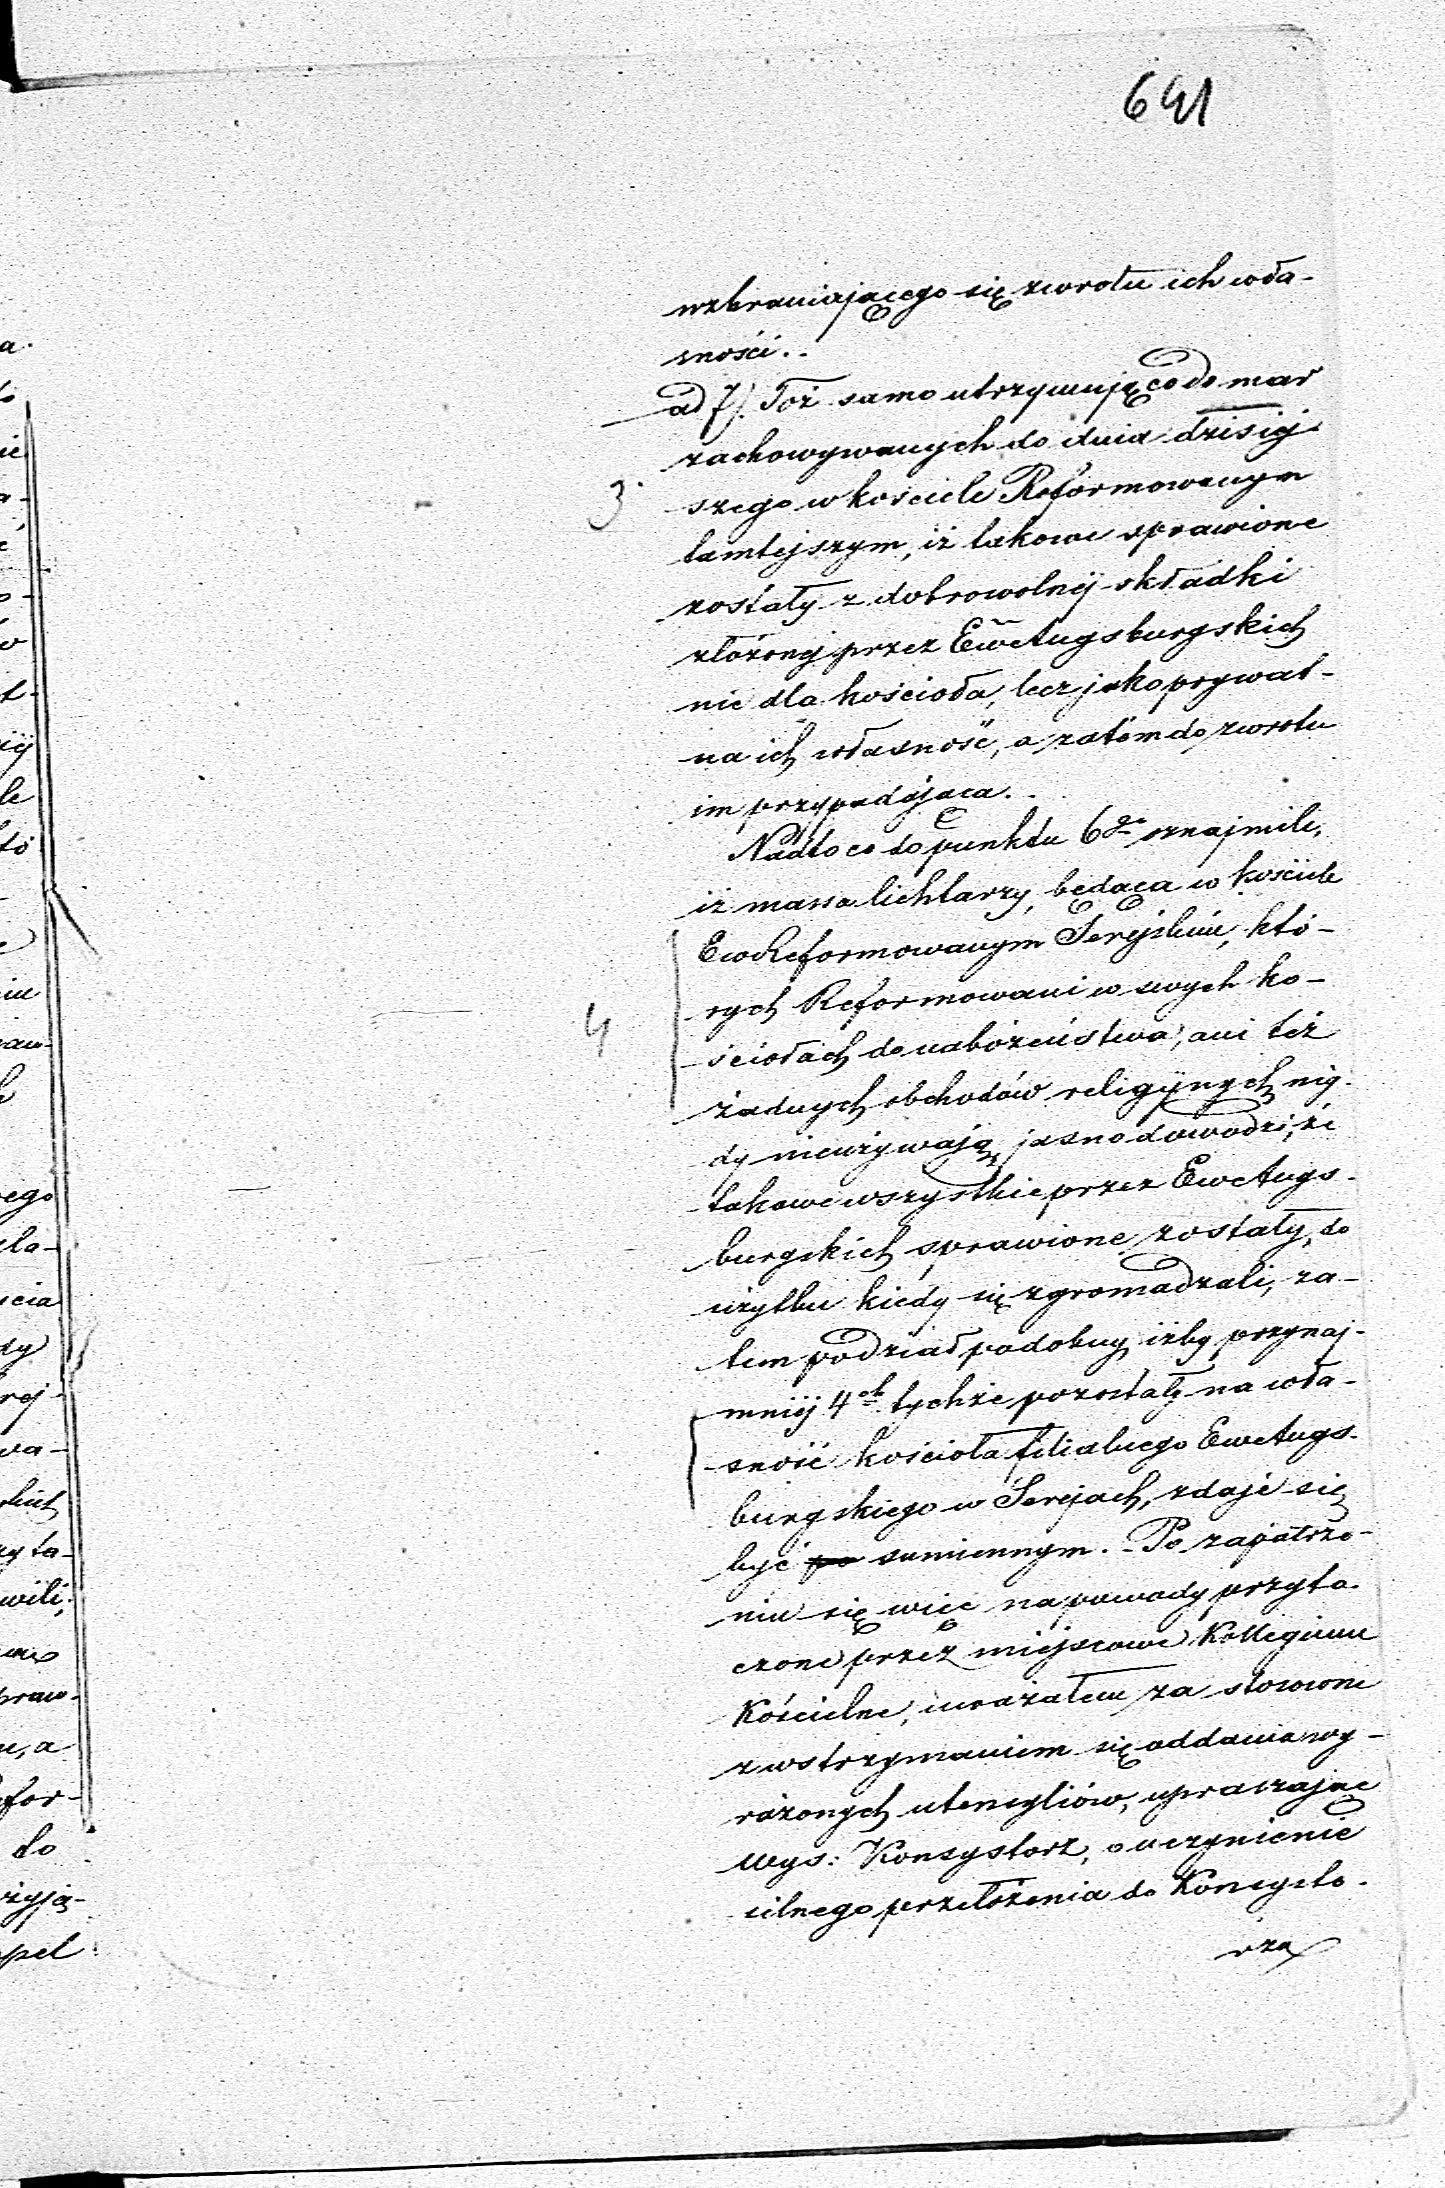 641
wzbraniającego się zwrotu ich wła-
sności..
ad 7). Toż samo utrzymują co do mar
zachowywanych do dnia dzisiej-
3.
szego w kościele Reformowanym
tamtejszym, iż takowe sprawione
zostały z dobrowolnéj składki
złożonej przez Ew Augsburgskich
nie dla kościoła, lecz jako prywat-
na ich własność, a zatém do zwrotu
im przypadająca..
Nadto co do punktu 6go oznajmili,
iż massa lichtarzy, będąca w kościele
Ew Reformowanym Serejskim, któ-
rych Reformowani w swych ko-
4
ściołach do nabożeństwa, ani też
żadnych obchodów religijnych nig-
dy nieużywają, jasno dowodzi, że
takowe wszystkie przez Ew Augs-
burgskich sprawione zostały, do
użytku kiedy się zgromadzali, za-
tem podział podobny iżby przynaj-
mniéj 4ch tychże pozostały na wła-
sność kościoła filialnego Ew Augs-
burgskiego w Serejach, zdaje się
być sumiennym. - Po zapatrze-
niu się więc na powody przyto-
czone przez miejscowe Kollegium
Kościelne, uważałem za stosowne
z wstrzymaniem się oddawia wy-
rażonych utensyliów, upraszając
Wys: Konsystorz, o uczynienie
silnego przełożenia do Konsysto-
rza